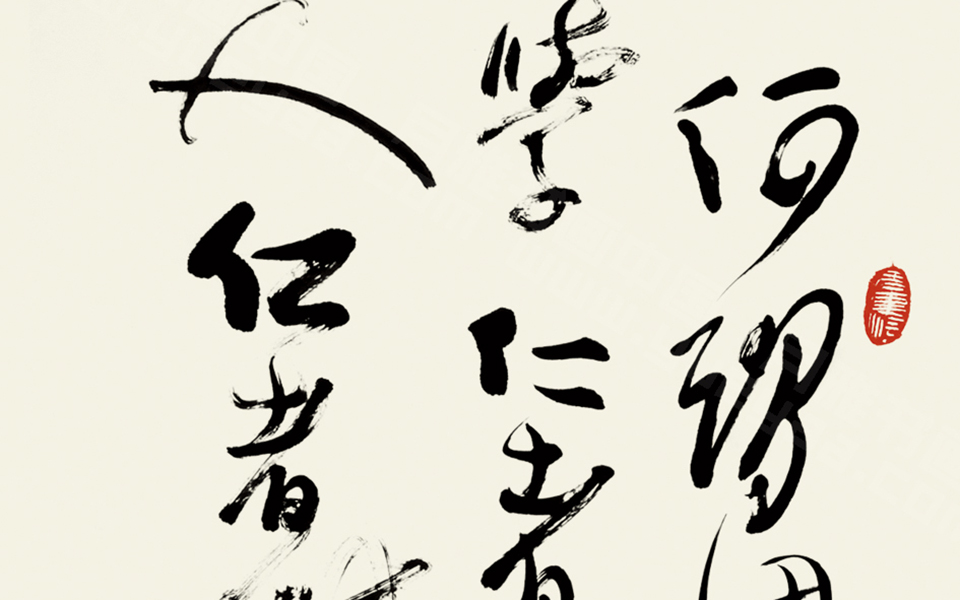 何謂因
學仁者
人仁者